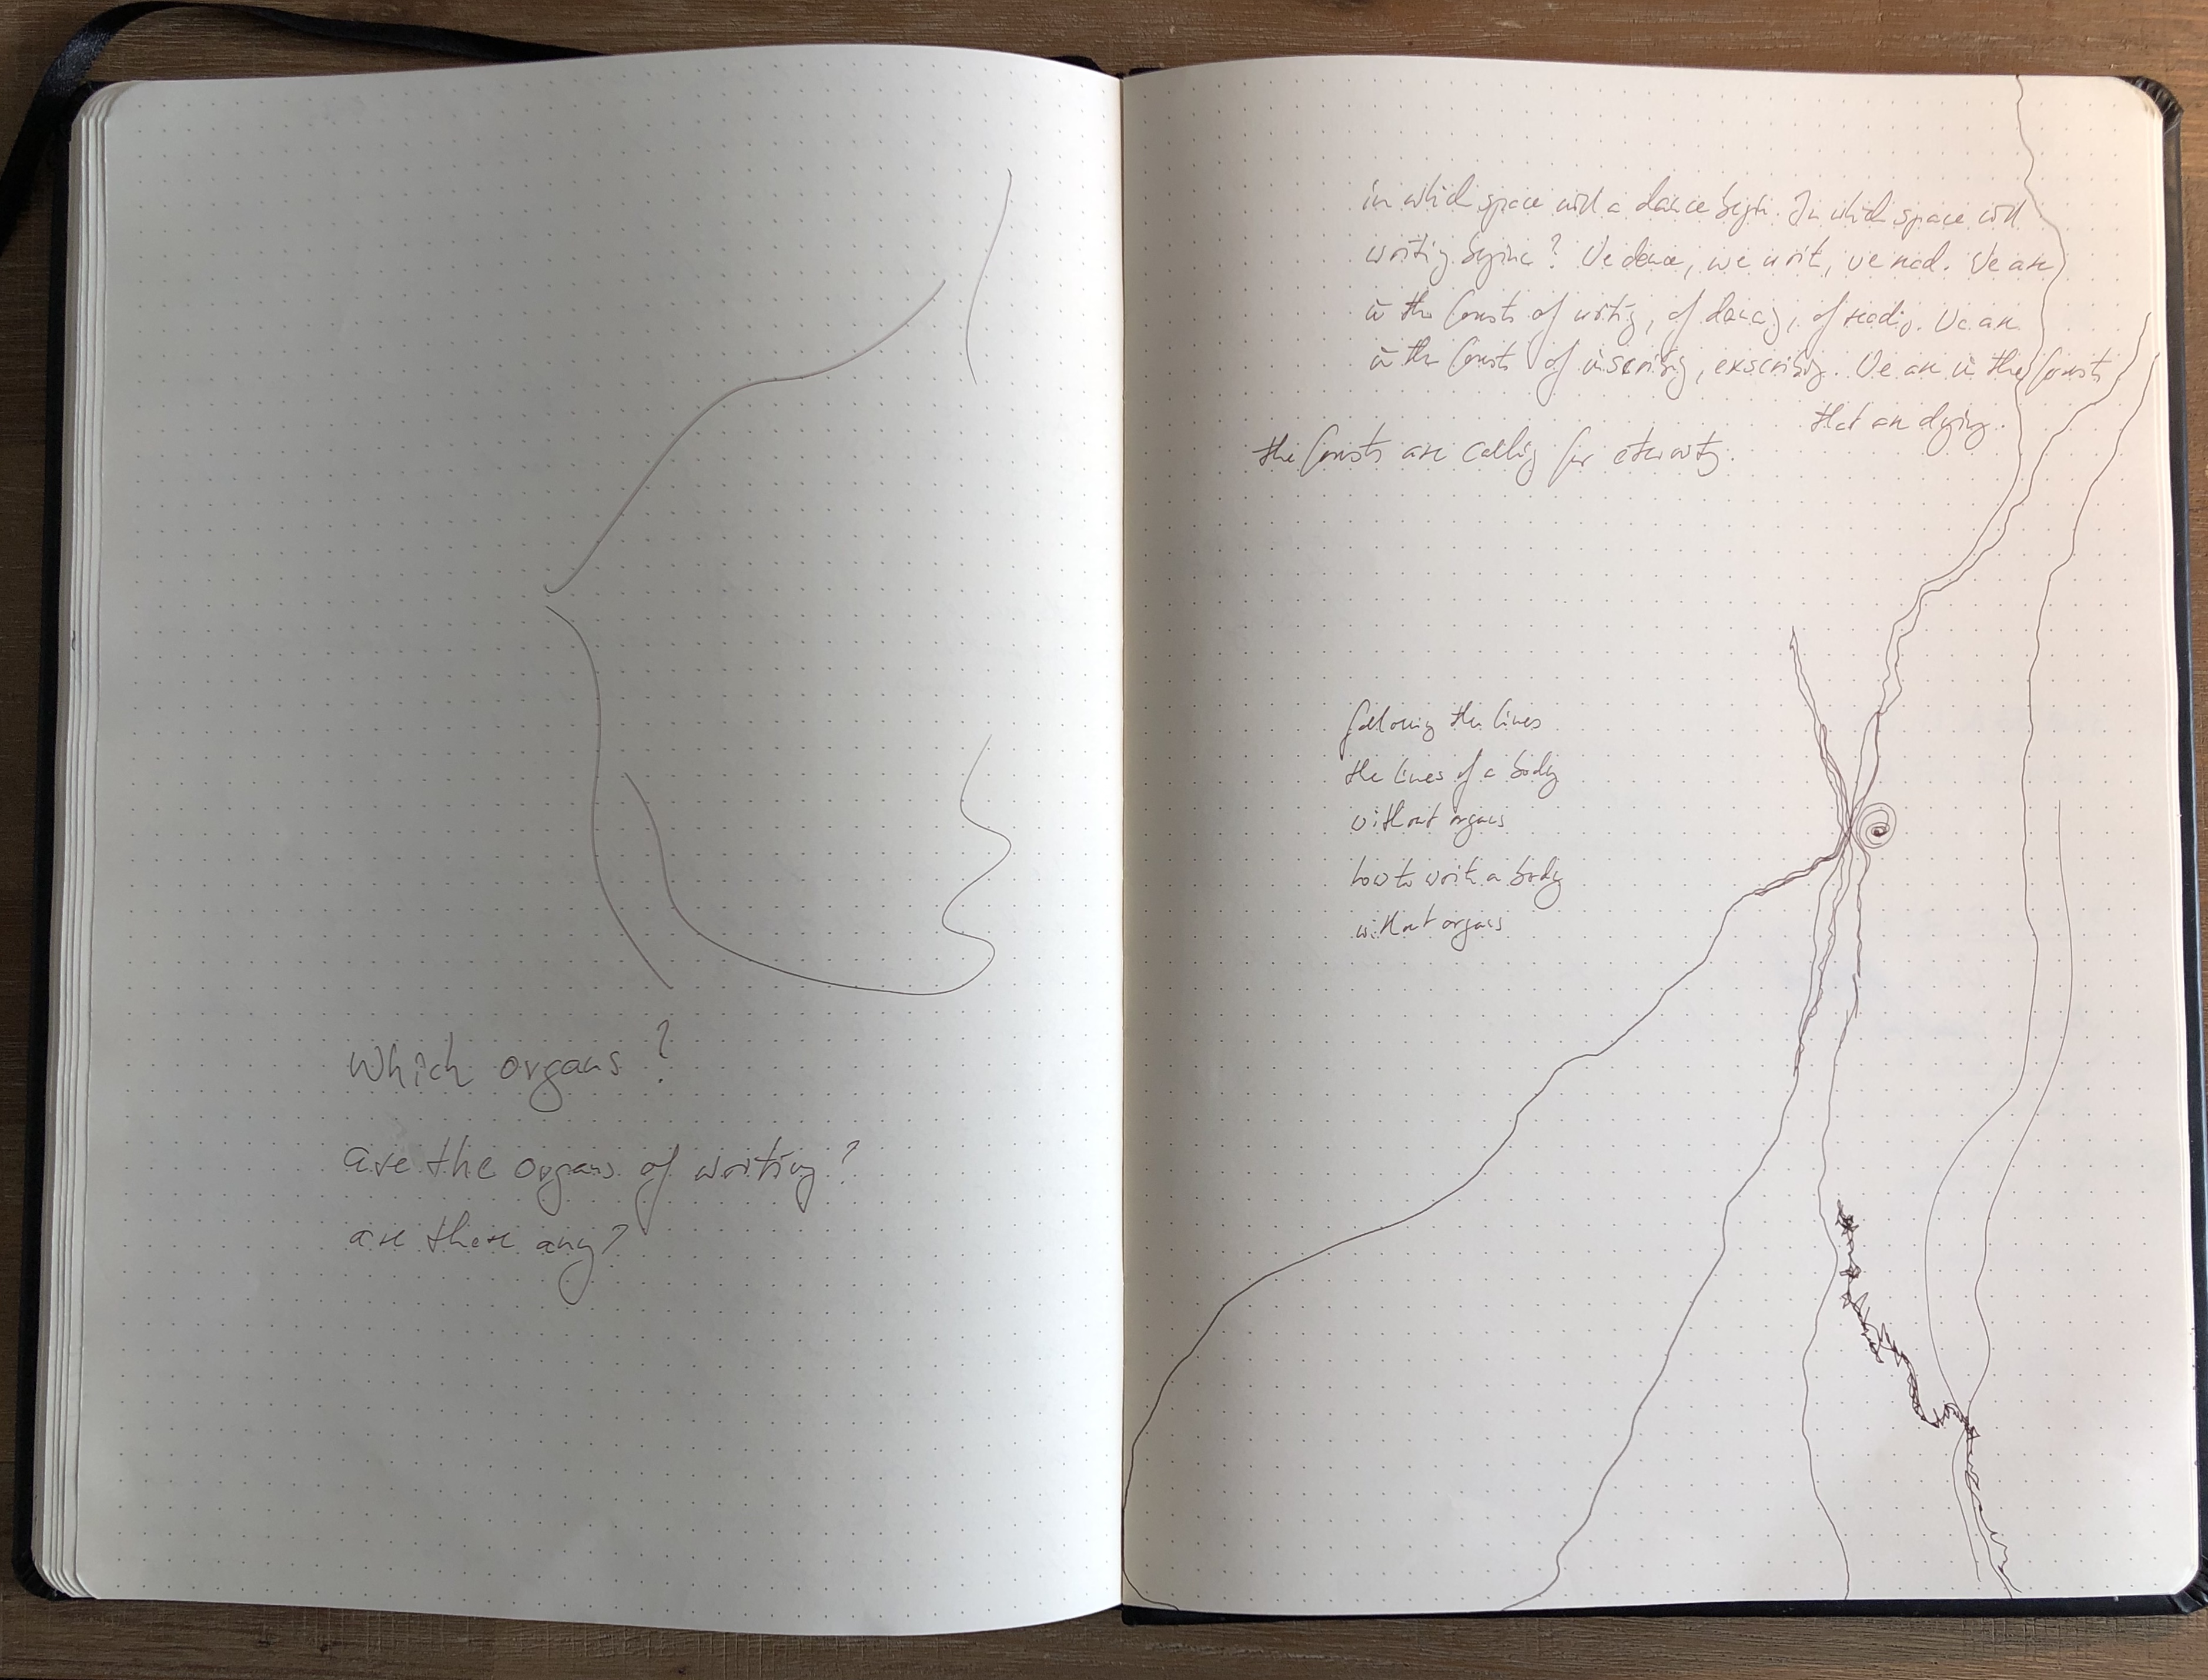 Which organs?
are the organs of writing?
are there any?
in which space will a dance begin. In which space will
writing begin? We dance, we write, we read. We are
in the forests of writing, of dancing, of reading. We are
in the forests of inscribing, exscribing. We are in the forests
that are dying.
the forests are calling for eternity.
following the lines
the lines of a body
without organs
how to write a body
without organs